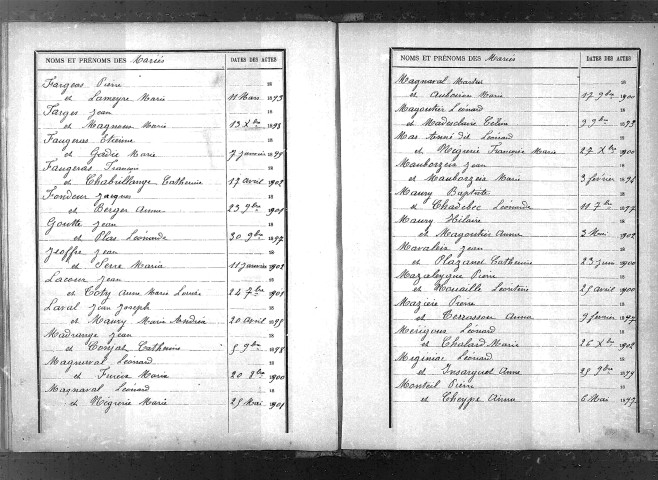 NOMS ET PRÉNOMS DES Mariés DATES DES ACTES
Fargeas Pierre 18
et Lameyre Marie 11 Mars 1893
Farges Jean 18
et Magnoux Marie 13 Xbre 1898
Faugeras Etienne 18
et Gadie Marie 7 janvier 1899
Faugeras François 18
et Chabrillange Catherine 17 avril 1902
Fondeur Jacques 18
et Berger Anna 23 9bre 1901
Goutte Jean 18
et Plas Léonarde 30 9bre 1897
Jeoffre Jean 18
et Serre Maria 11 janvier 1902
Lacour Jean 18
et Coty Anne Marie Louise 24 7bre 1901
Laval Jean Joseph 18
et Maury Marie 20 avril 1898
Madrange Jean 18
et Catherine 5 9bre 1898
Magnaval Léonard 18
et Marie 20 8bre 1900
Magnaval Léonard 18
et Négrerie Marie 25 Mai 1901
NOMS ET PRÉNOMS DES Mariés DATES DES ACTES
Magnaval Martin 18
et 17 9bre 1900
Magoutier Léonard 18
et 9 9bre 1899
Mas Léonard 18
et Négrerie Françoise Marie 27 Xbre 1900
Jean 18
et Marie 3 février 1894
Maury Baptiste 18
et Chadebec Léonarde 11 7bre 1897
Maury Hilaire 18
et Magoutier Anna 3 Mai 1902
Jean 18
et Plazanet Catherine 23 juin 1900
Mazaleygue Pierre 18
et Nouaille Léontine 25 avril 1900
Mazière Pierre 18
et Terrasson Anna 9 février 1897
Mérigoux Léonard 18
et Chalard Marie 26 Xbre 1902
Meginiac Léonard 18
et Anna 25 9bre 1899
Monteil Pierre 18
et Cheype Anna 6 Mai 1899